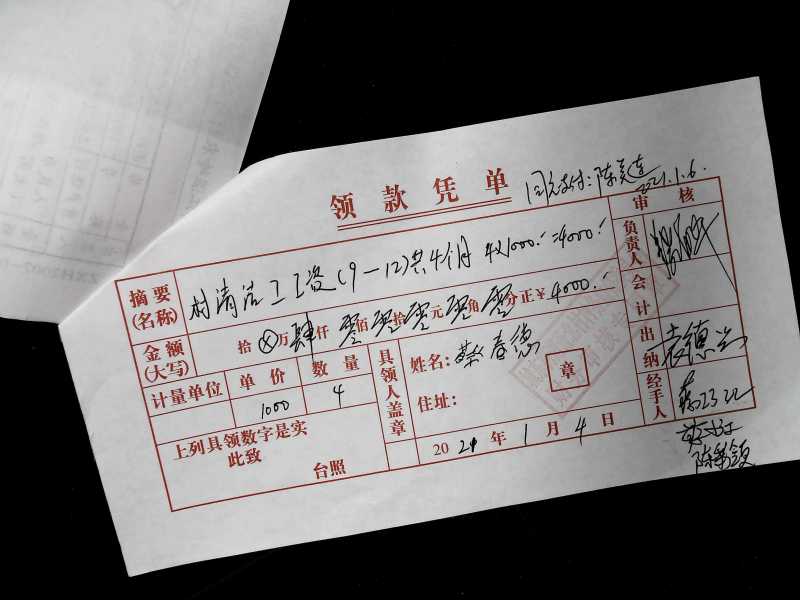 领款凭单
同意支付:陈
2021.1.6.
摘要(名称) 村清洁工工资(9—12)共4个月 4×1000.=4000.
金额(大写) 拾ⓧ万肆仟零佰零拾零元零角零分正¥4000.
计量单位 单价 数量
1000 4
上列具领数字是实
此致
台照
具领人盖章
姓名:蔡春德
住址:
章
2021年1月4日
审核
负责人
会计
出纳 袁德
经手人